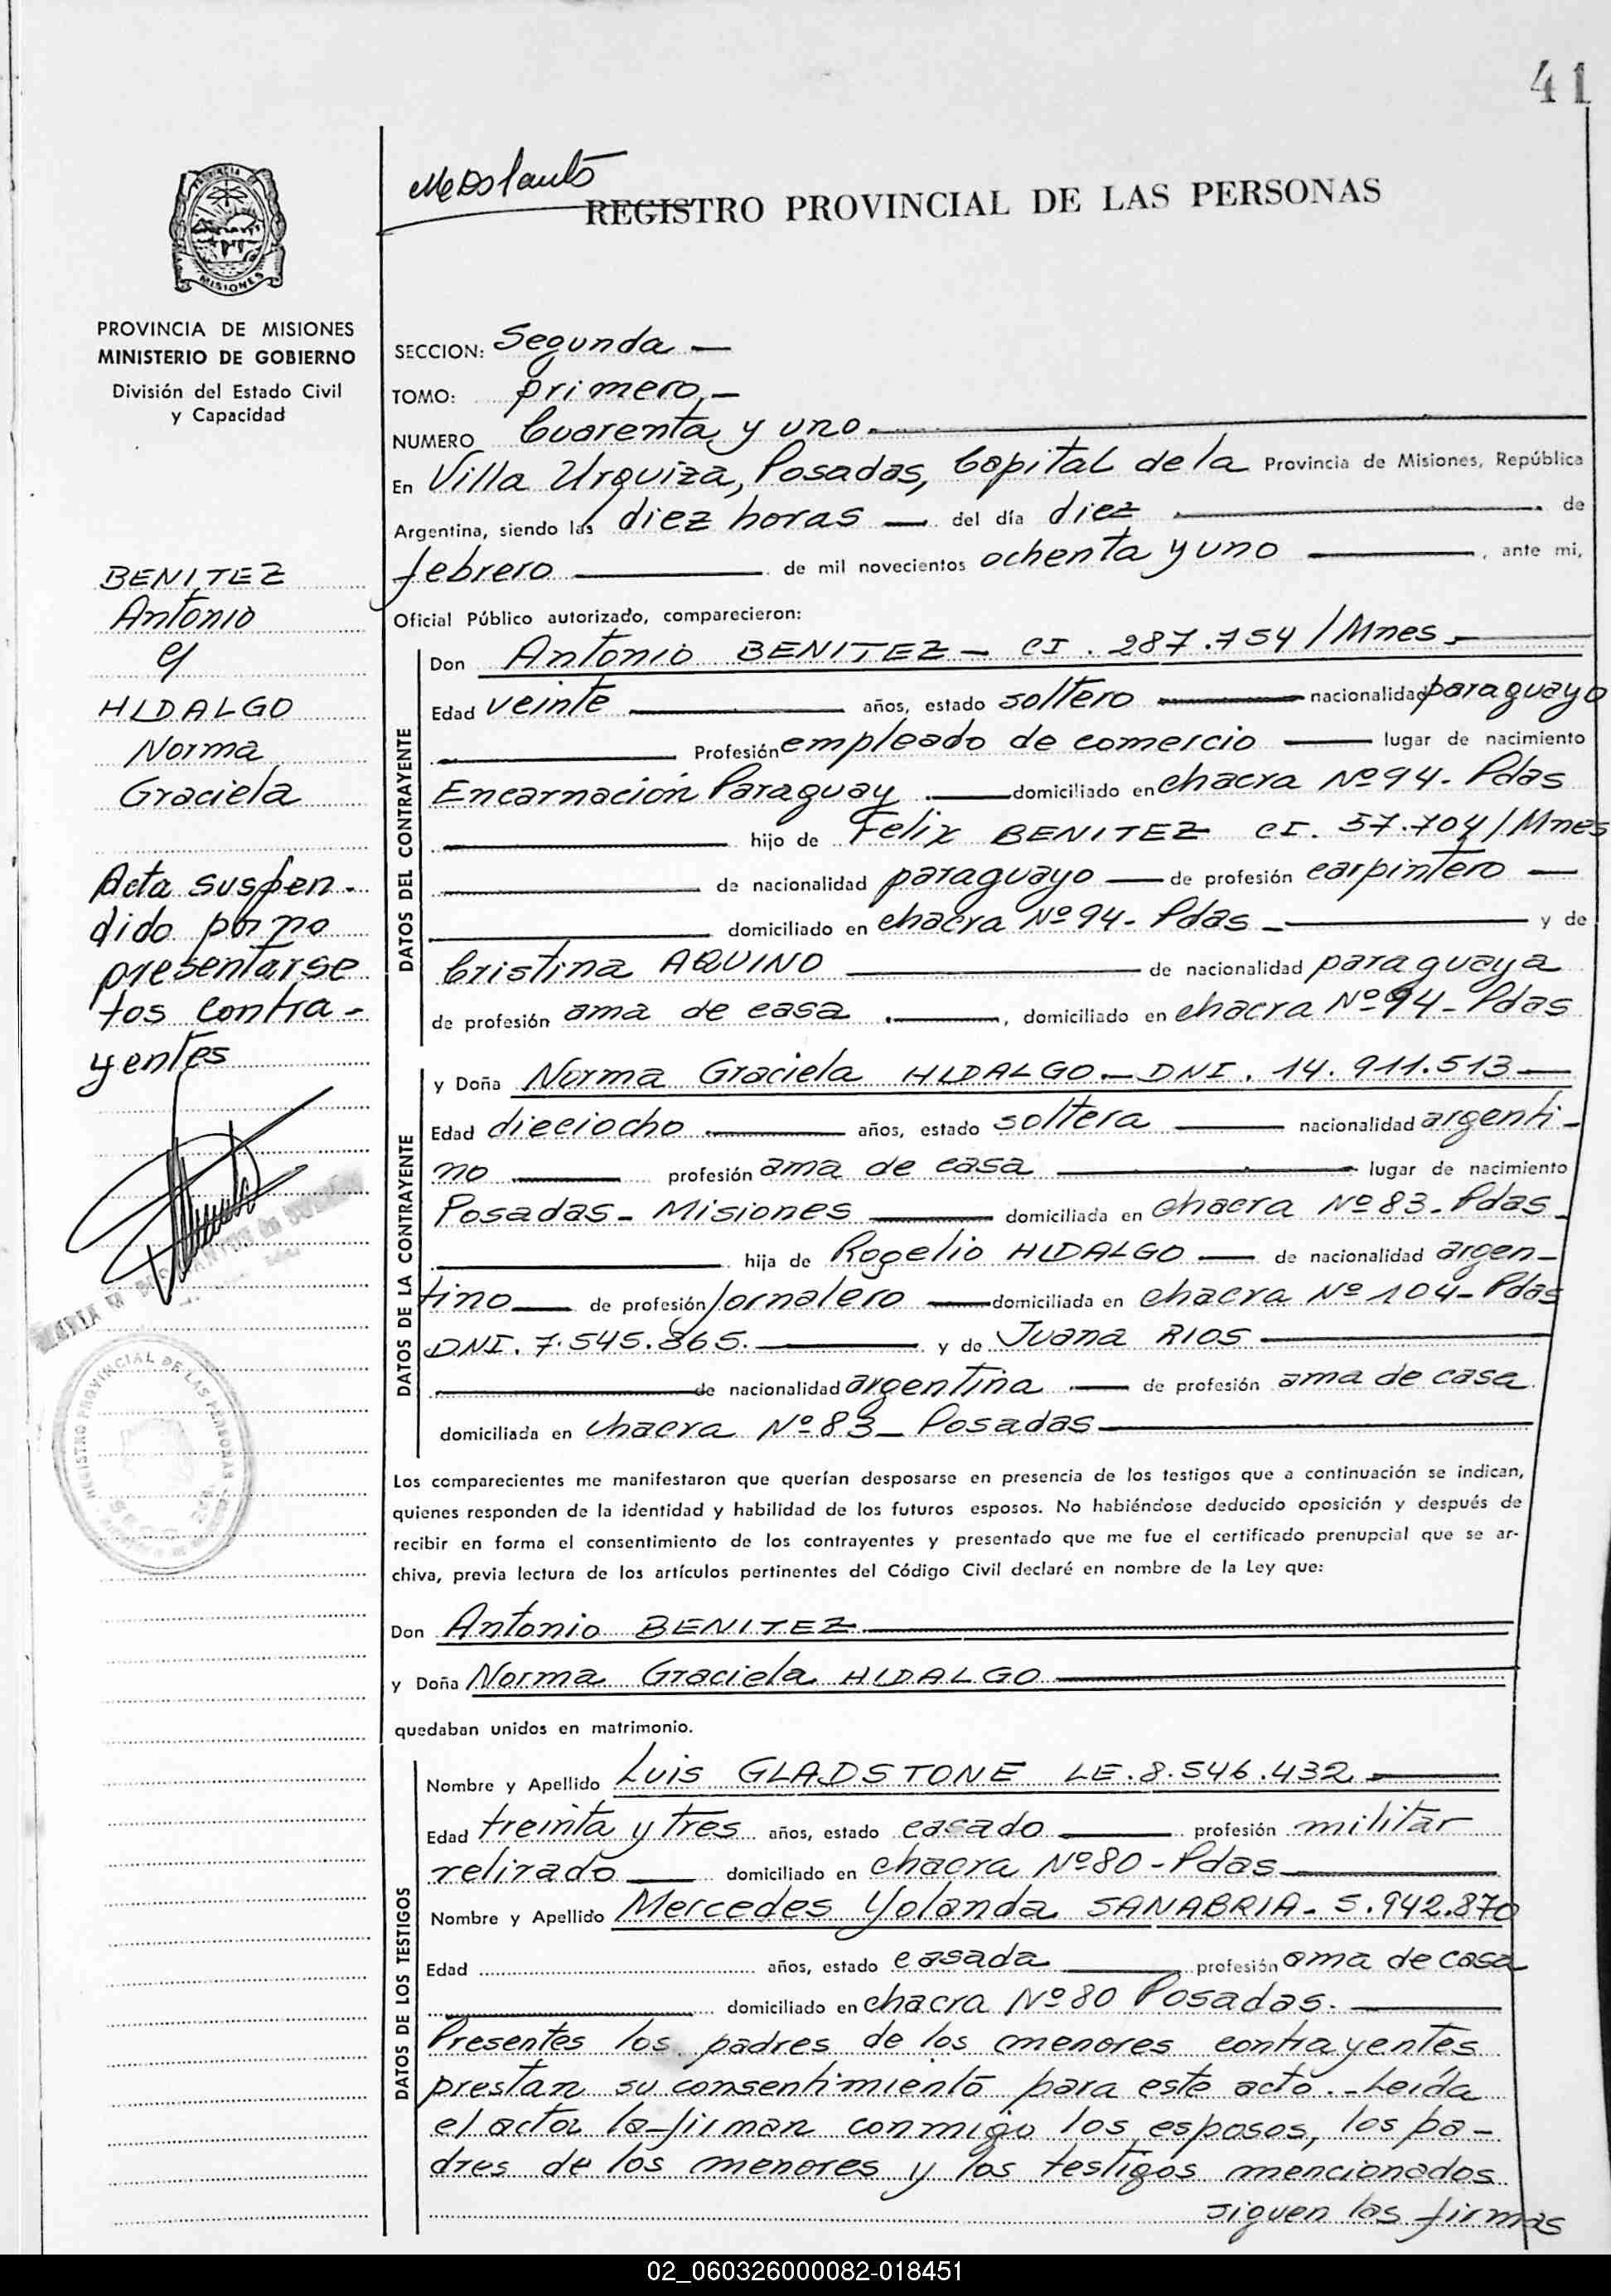 41
REGISTRO PROVINCIAL DE LAS PERSONAS
PROVINCIA DE
MISIONES
PROVINCIA DE MISIONES
MINISTERIO DE GOBIERNO
División del Estado Civil
y Capacidad
SECCION: Segunda —
TOMO: primero.—
NUMERO Cuarenta y uno.—
En Villa Urquiza, Posadas, Capital de la Provincia de Misiones, República
Argentina, siendo las diez horas — del día diez — de
febrero — de mil novecientos ochenta y uno —, ante mi,
Oficial Público autorizado, comparecieron:
BENITEZ
Antonio
y
HIDALGO
Norma
Graciela
Acta suspen-
dido por no
presentarse
los contra-
yentes
DATOS DEL CONTRAYENTE
Don Antonio BENITEZ — CI. 287.754/Mnes.—
Edad veinte — años, estado soltero — nacionalidad paraguayo
— Profesión empleado de comercio — lugar de nacimiento
Encarnación Paraguay — domiciliado en chacra Nº 94- Pdas
— hijo de Felix BENITEZ CI. 57.704/Mnes
— de nacionalidad paraguayo — de profesión carpintero —
— domiciliado en chacra Nº 94- Pdas — y de
Cristina AQUINO — de nacionalidad paraguaya
de profesión ama de casa —, domiciliado en chacra Nº 94- Pdas
DATOS DE LA CONTRAYENTE
y Doña Norma Graciela HIDALGO — DNI. 14.911.513 —
Edad dieciocho — años, estado soltera — nacionalidad argenti-
na — profesión ama de casa — lugar de nacimiento
Posadas - Misiones — domiciliada en chacra Nº 83- Pdas
— hija de Rogelio HIDALGO — de nacionalidad argen-
tino — de profesión jornalero — domiciliada en chacra Nº 104- Pdas
DNI. 7.545.865. — y de Juana RIOS —
— de nacionalidad argentina — de profesión ama de casa
domiciliada en chacra Nº 83 - Posadas —
REGISTRO PROVINCIAL DE LAS PERSONAS
Los comparecientes me manifestaron que querían desposarse en presencia de los testigos que a continuación se indican,
quienes responden de la identidad y habilidad de los futuros esposos. No habiéndose deducido oposición y después de
recibir en forma el consentimiento de los contrayentes y presentado que me fue el certificado prenupcial que se ar-
chiva, previa lectura de los artículos pertinentes del Código Civil declaré en nombre de la Ley que:
Don Antonio BENITEZ —
y Doña Norma Graciela HIDALGO —
quedaban unidos en matrimonio.
DATOS DE LOS TESTIGOS
Nombre y Apellido Luis GLADSTONE LE. 8.546.432 —
Edad treinta y tres años, estado casado — profesión militar
retirado — domiciliado en chacra Nº 80 - Pdas —
Nombre y Apellido Mercedes Yolanda SANABRIA - 5.942.870
Edad años, estado casada — profesión ama de casa
— domiciliado en chacra Nº 80 Posadas. —
Presentes los padres de los menores contrayentes
prestan su consentimiento para este acto.- Leída
el acta la firman conmigo los esposos, los pa-
dres de los menores y los testigos mencionados
siguen las firmas
02_060326000082-018451